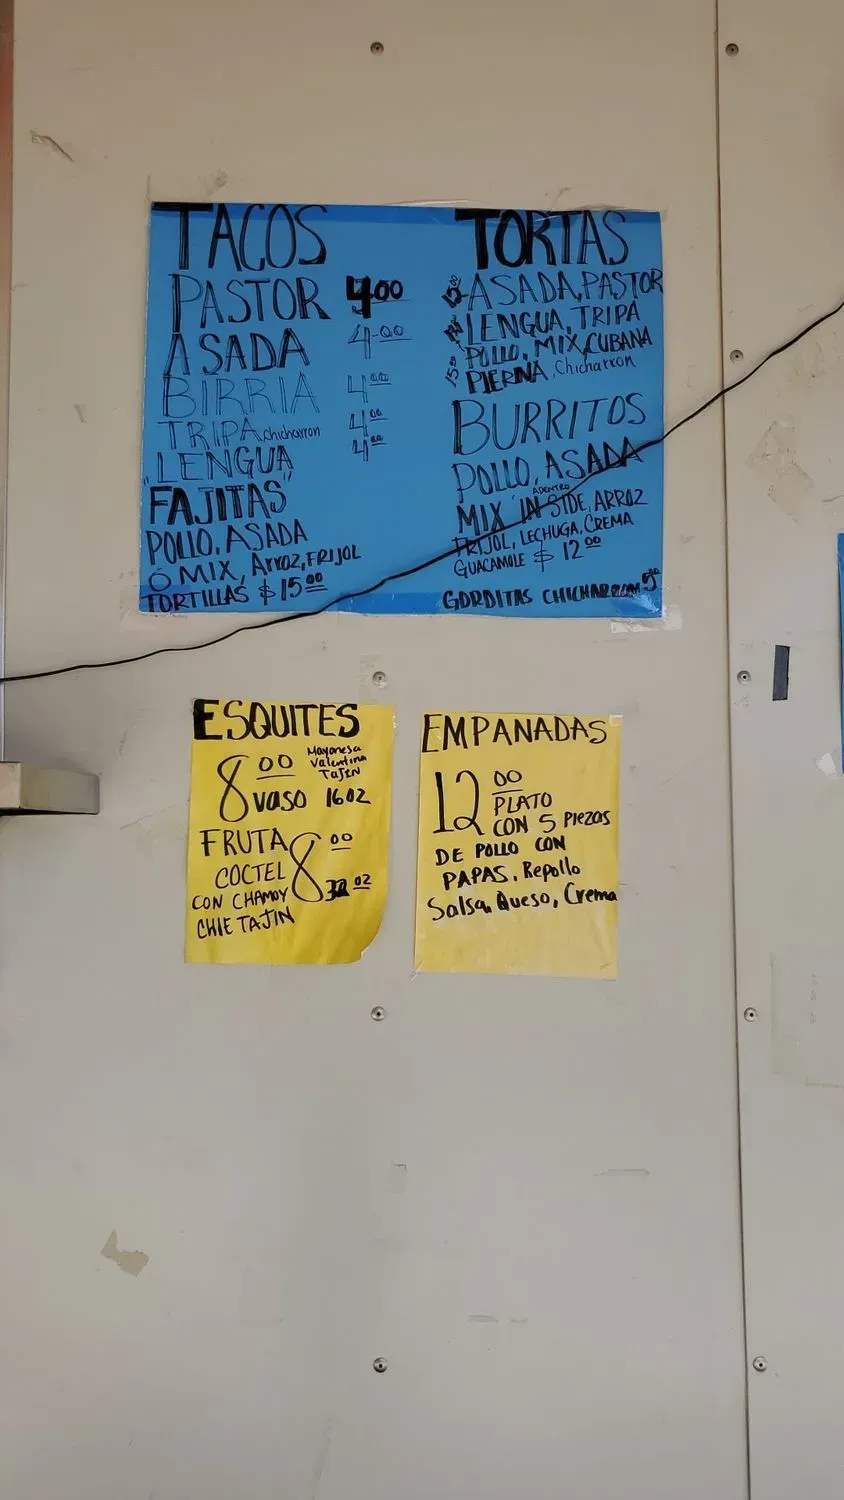 TACOS
PASTOR 4.00
ASADA 4.00
BIRRIA 4.00
TRIPA chicharron 4.00
"LENGUA" 4.00
FAJITAS
POLLO, ASADA
Ó MIX, Arroz, FRIJOL
TORTILLAS $15.00
TORTAS
ASADA, PASTOR
LENGUA, TRIPA
POLLO, MIX, CUBANA
15.00 PIERNA, Chicharron
BURRITOS
POLLO, ASADA
ADENTRO
MIX IN SIDE, ARROZ
FRIJOL, LECHUGA, CREMA
GUACAMOLE $12.00
GORDITAS CHICHARRON 5.00
ESQUITES
8.00 Mayonesa
Valentina
TAJIN
VASO 16 OZ
FRUTA 8.00
COCTEL
32 OZ
CON CHAMOY
CHIE TAJIN
EMPANADAS
12.00
PLATO
CON 5 Piezas
DE POLLO CON
PAPAS, Repollo
Salsa, Queso, Crema